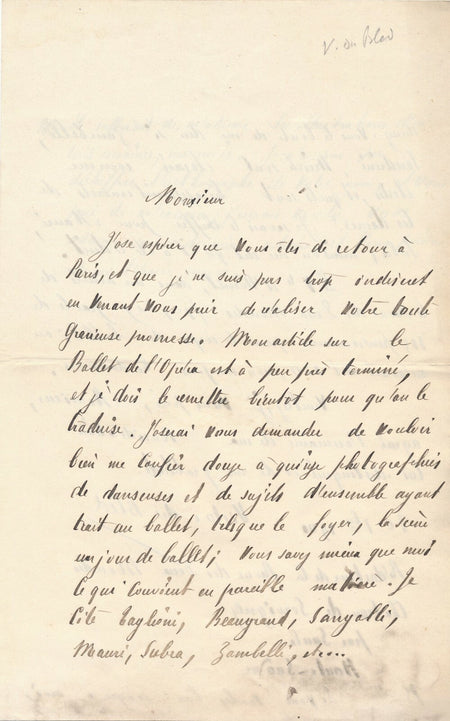 V. du Bled
Monsieur
J'ose espérer que vous êtes de retour à
Paris, et que je ne suis pas trop indiscret
en venant vous prier de réaliser votre toute
gracieuse promesse. Mon article sur le
Ballet de l'Opéra est à peu près terminé,
et je dois le remettre bientôt pour qu'on le
traduise. J'oserai vous demander de vouloir
bien me confier douze à quinze photographies
de danseuses et de sujets d'ensemble ayant
trait au ballet, telsque le foyer, la scène
un jour de ballet; vous savez mieux que moi
ce qui convient en pareille matière. Je
cite Taglioni, Beaugrand, Sangalli,
Mauri, Subra, Zambelli, etc...